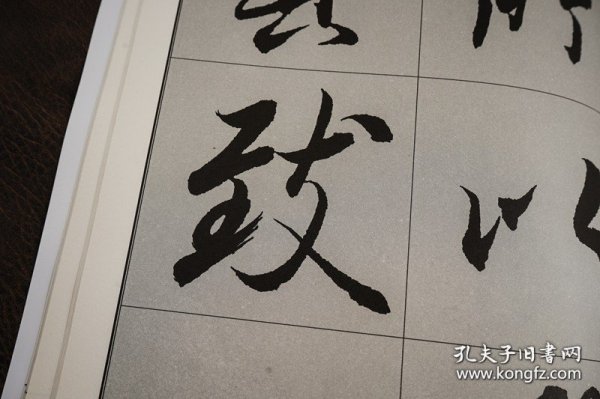 所
以
致
孔夫子旧书网
www.kongfz.com